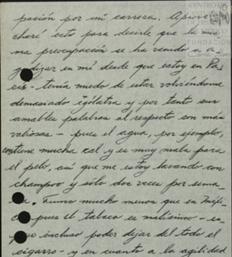 pación por mi carrera. Aprove-
charé esto para decirle que la mis-
ma preocupación se ha venido a a-
gudizar en mí desde que estoy en Pa-
rís - tenía miedo de estar volviéndome
demasiado ególatra y por tanto sus
amables palabras al respecto son más
valiosas - pues el agua, por ejemplo,
contiene mucha cal y es muy mala para
el pelo, así que me estoy lavando con
champoo y sólo dos veces por sema-
na. Fumo mucho menos que en Méji-
co pues el tabaco es malísimo -
incluso poder dejar del todo el
cigarro - y en cuanto a la agilidad